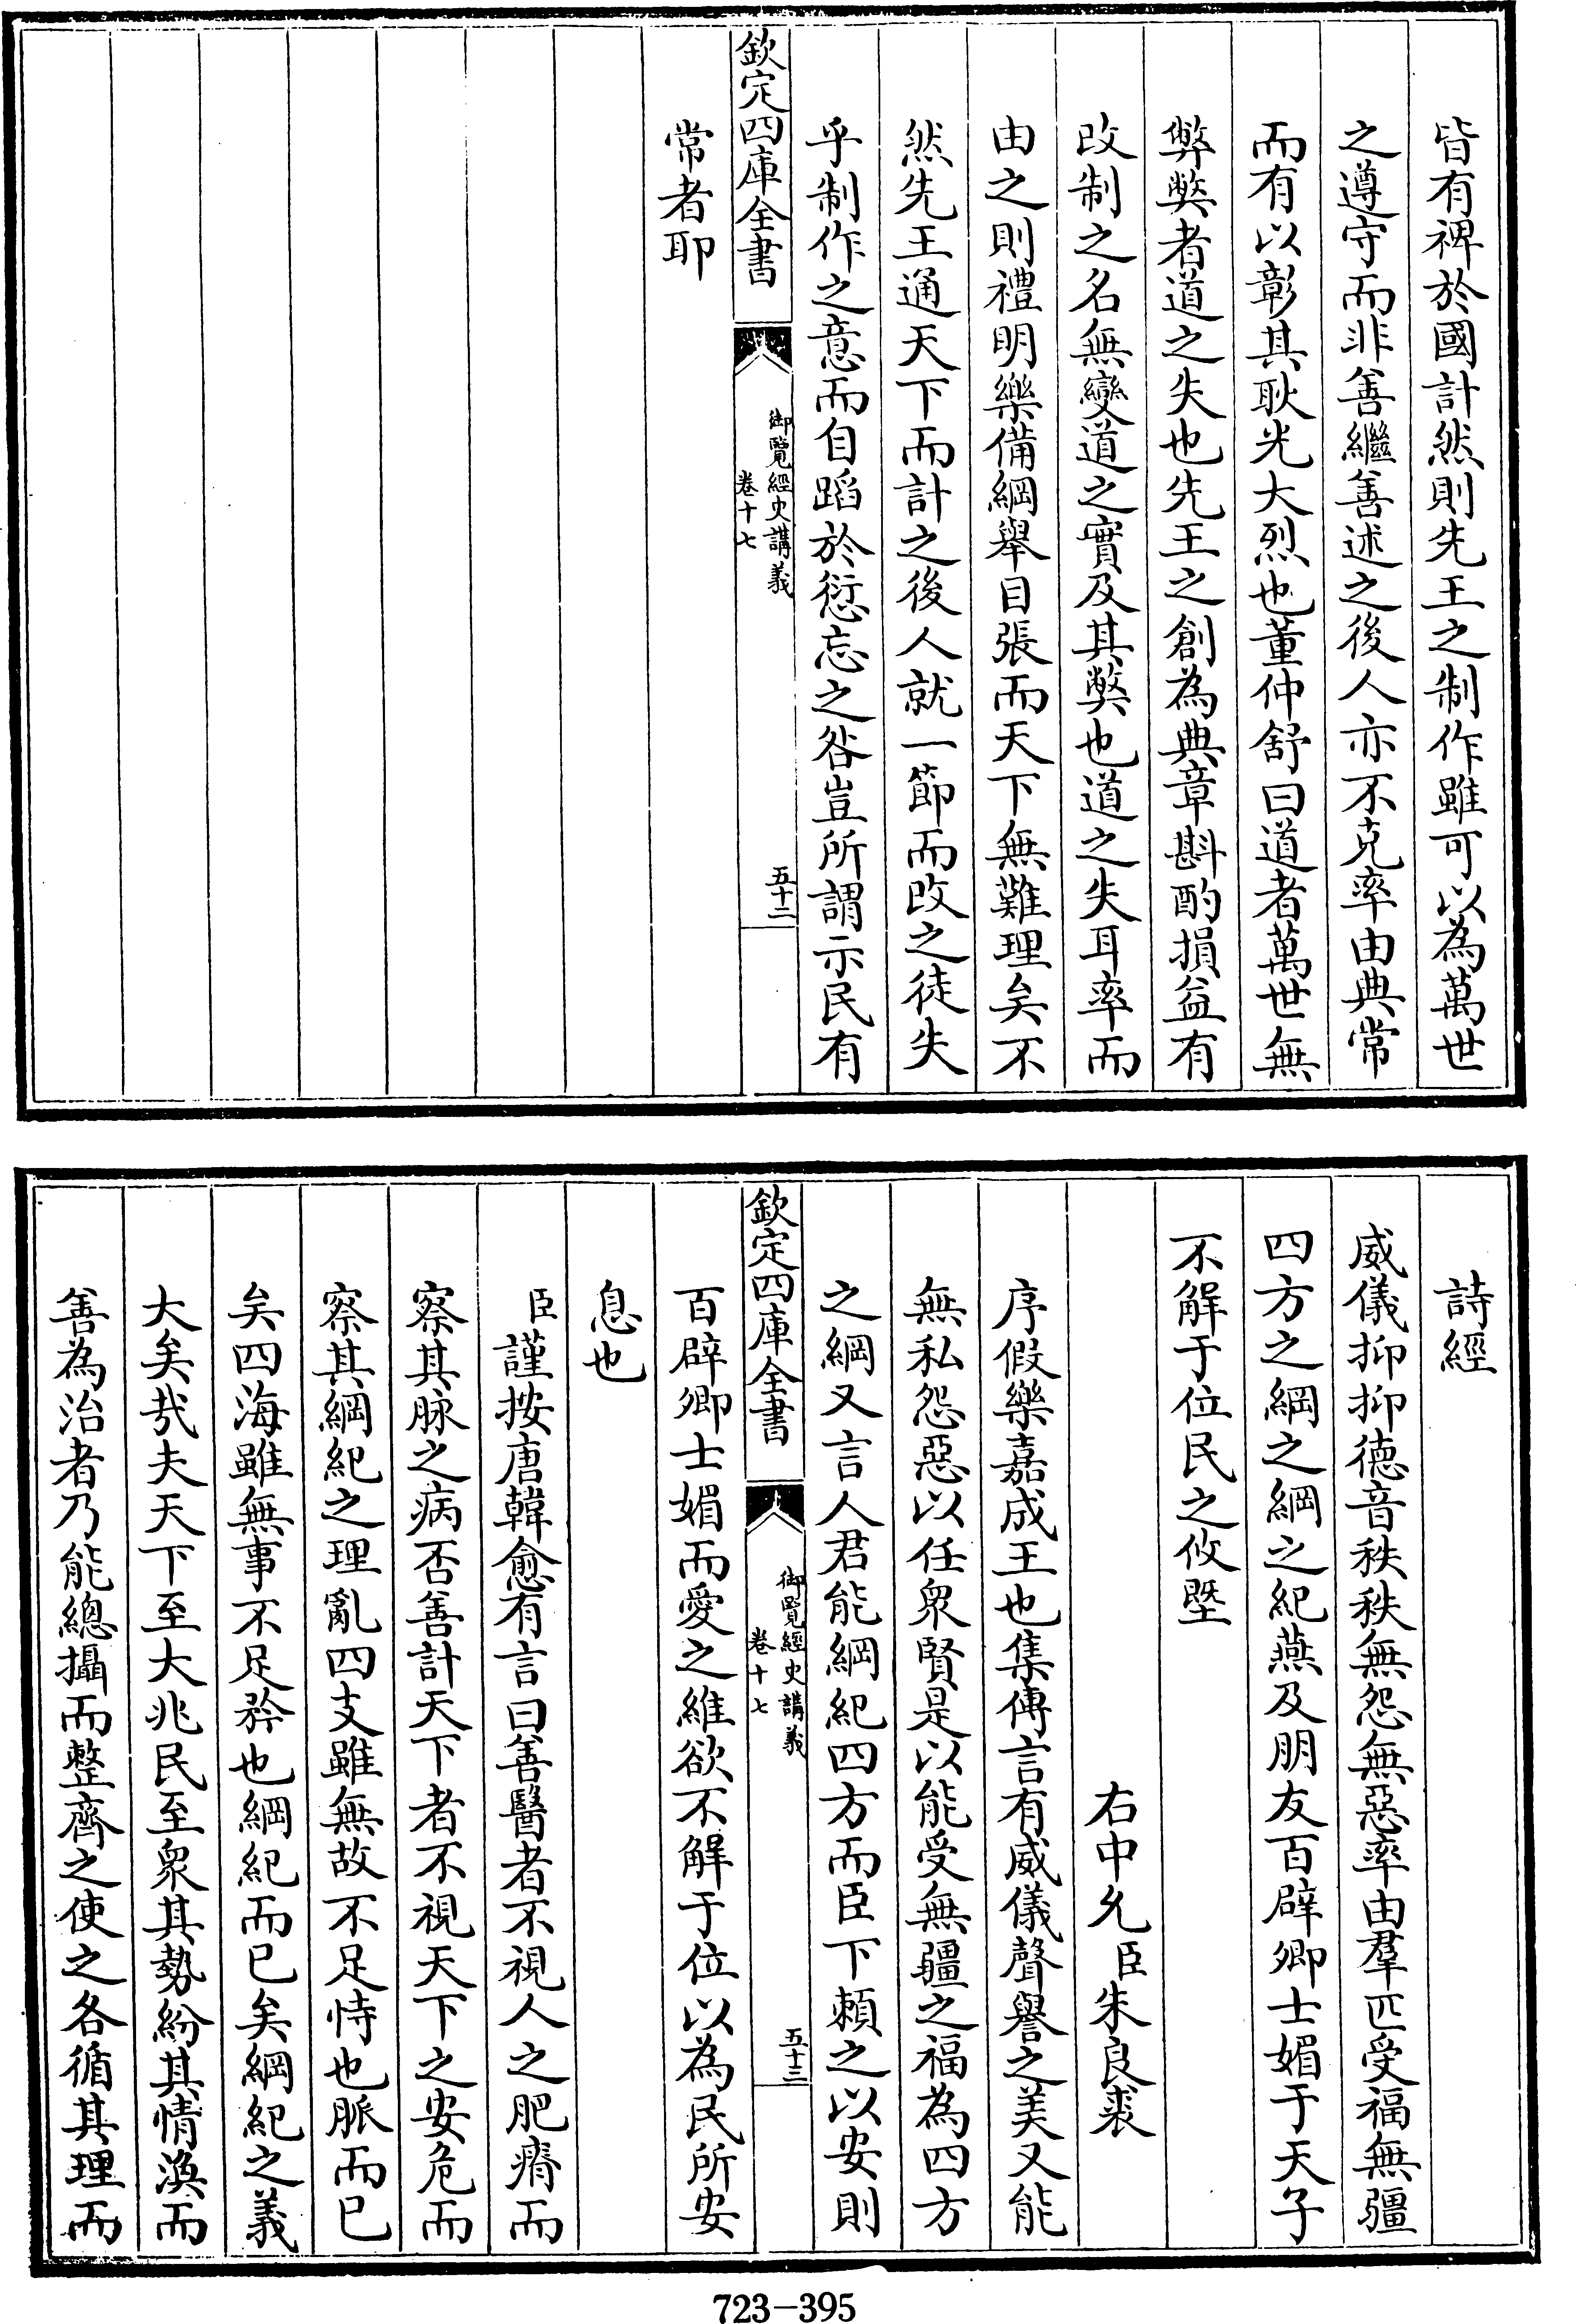 皆有裨於國計然則先王之制作雖可以為萬世
之遵守而非善繼善述之後人亦不克率由典常
而有以彰其耿光大烈也董仲舒曰道者萬世無
弊弊者道之失也先王之創為典章斟酌損益有
改制之名無變道之實及其弊也道之失耳率而
由之則禮明樂備綱舉目張而天下無難理矣不
然先王通天下而計之後人就一節而改之徒失
乎制作之意而自蹈於愆忘之咎豈所謂示民有
欽定四庫全書
御覽經史講義
卷十七
五十二
常者耶
詩經
威儀抑抑德音秩秩無怨無惡率由羣匹受福無疆
四方之綱之綱之紀燕及朋友百辟卿士媚于天子
不解于位民之攸塈
右中允臣朱良裘
序假樂嘉成王也集傳言有威儀聲譽之美又能
無私怨惡以任衆賢是以能受無疆之福為四方
之綱又言人君能綱紀四方而臣下賴之以安則
欽定四庫全書
御覽經史講義
卷十七
五十三
百辟卿士媚而愛之維欲不解于位以為民所安
息也
臣謹按唐韓愈有言曰善醫者不視人之肥瘠而
察其脉之病否善計天下者不視天下之安危而
察其綱紀之理亂四支雖無故不足恃也脈而已
矣四海雖無事不足矜也綱紀而已矣綱紀之義
大矣哉夫天下至大兆民至衆其勢紛其情渙而
善為治者乃能總攝而整齊之使之各循其理而
723-395